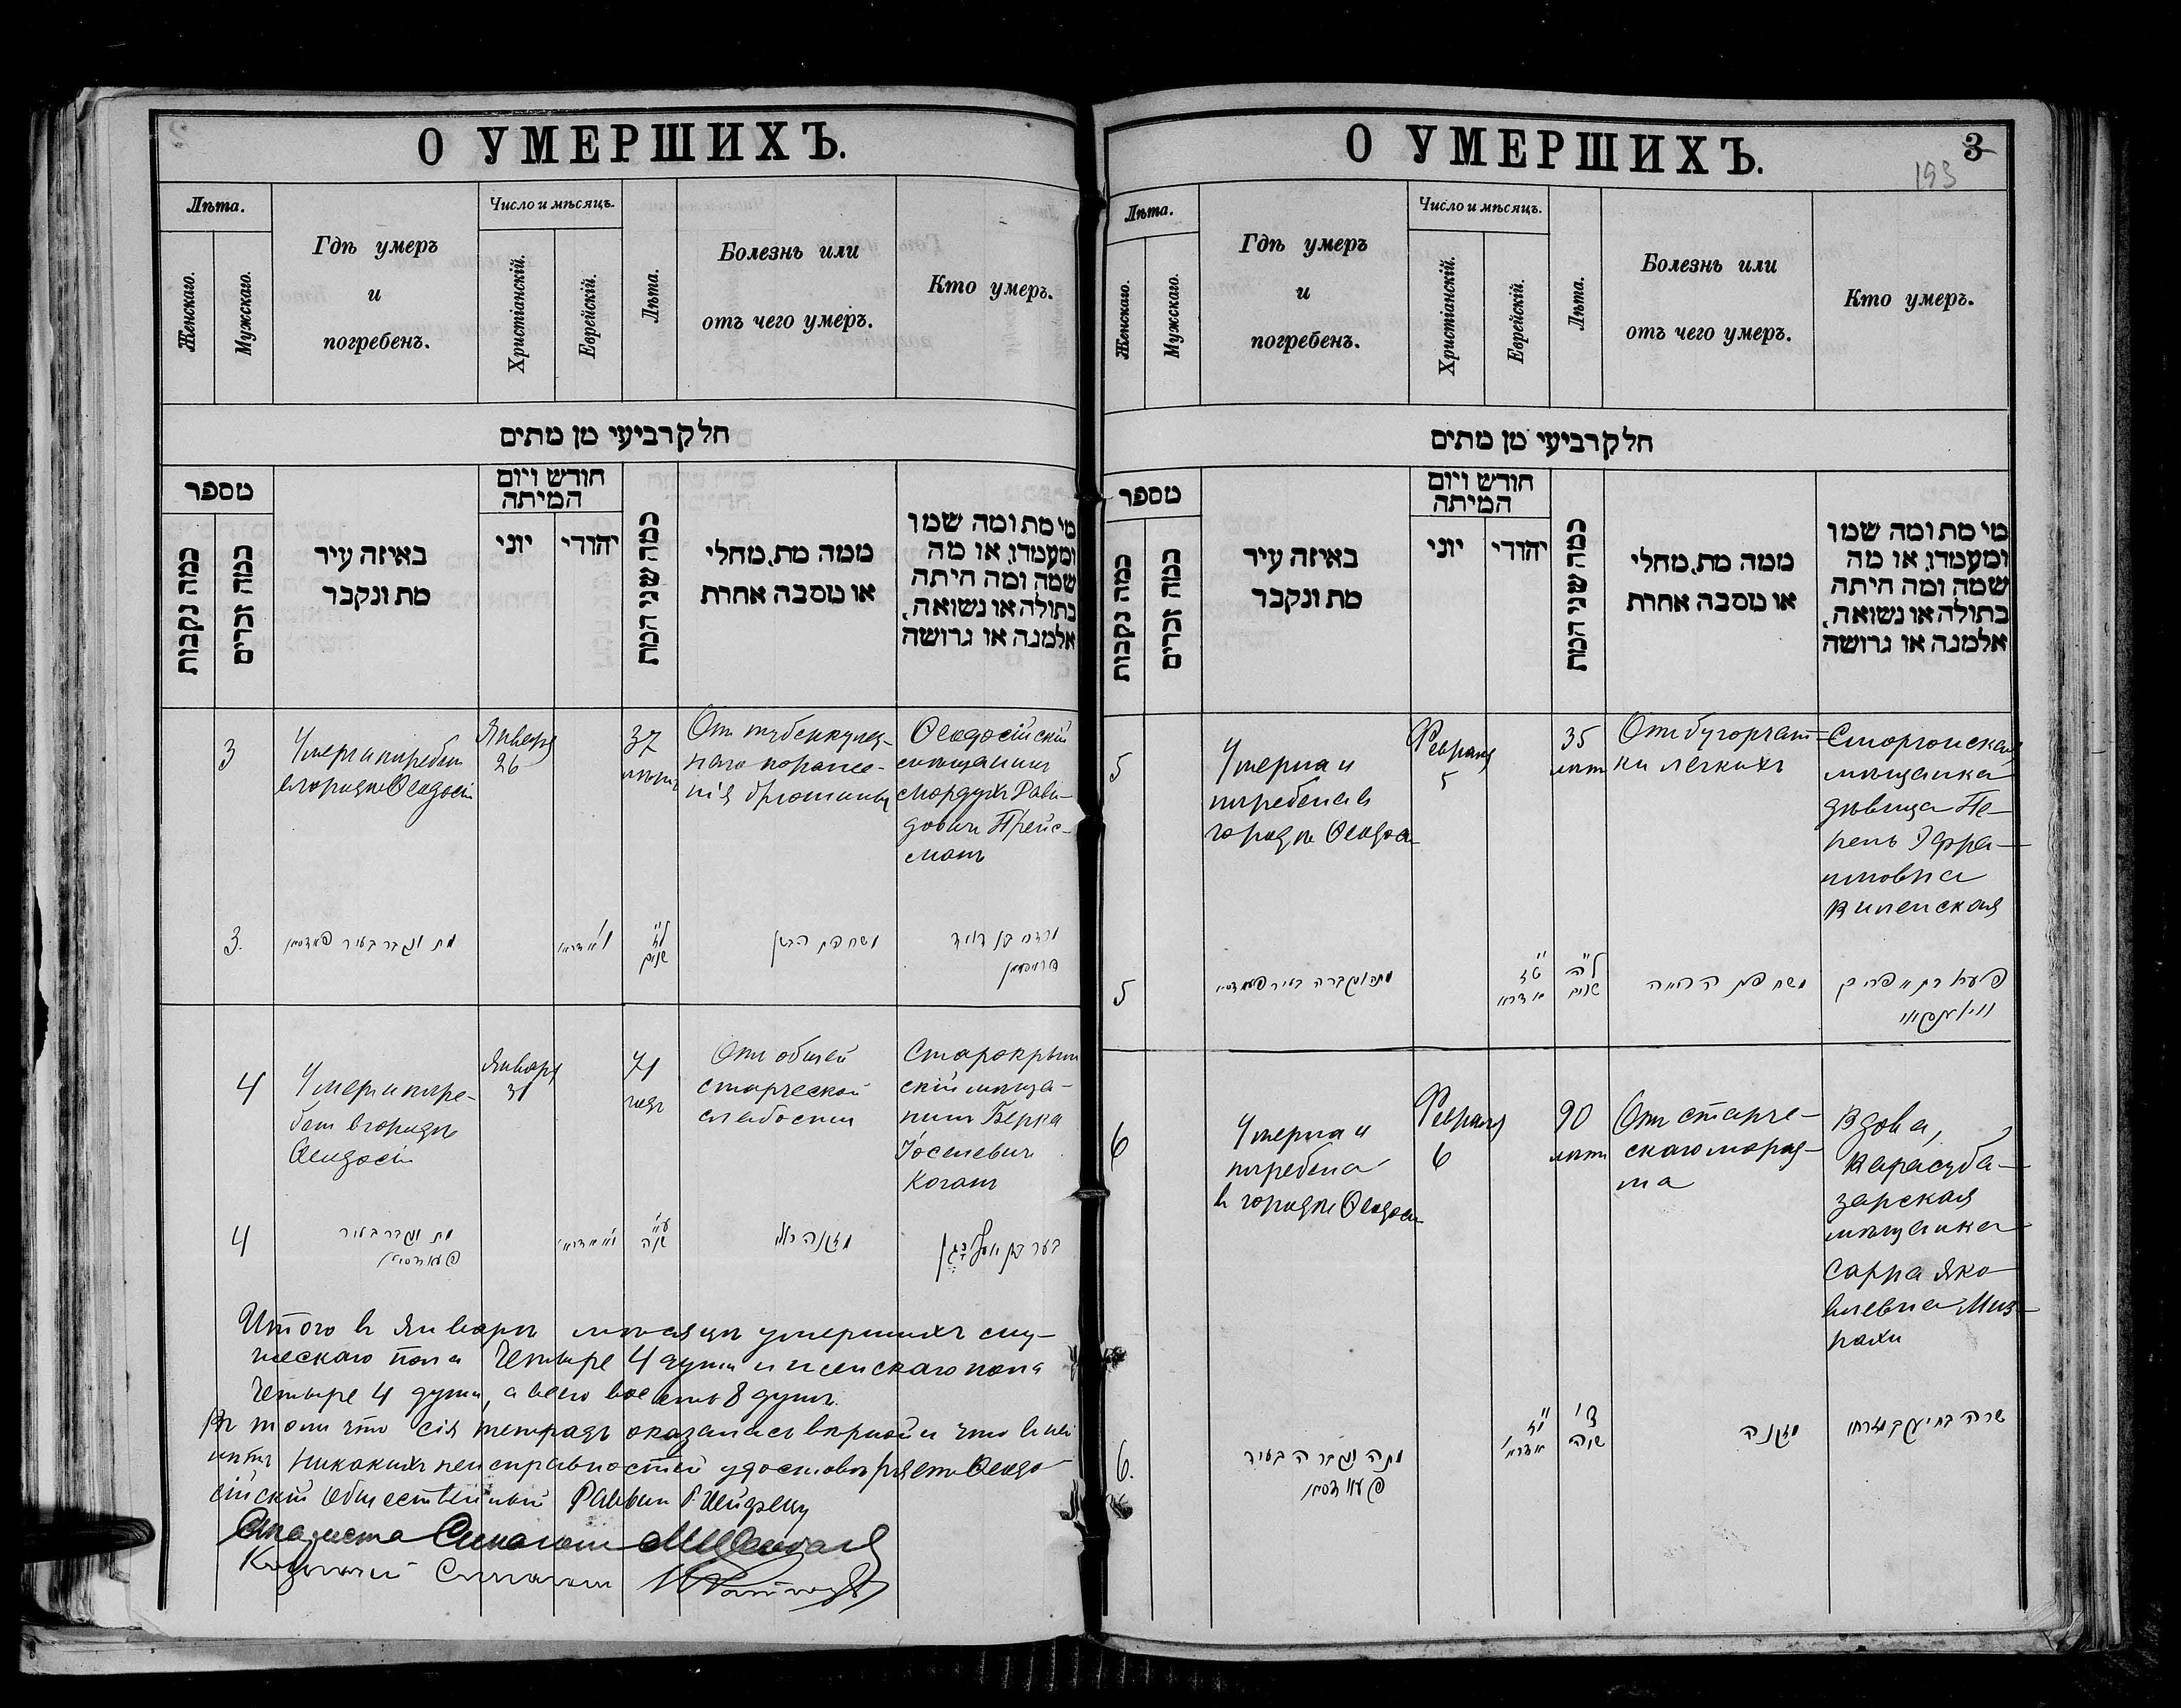 О УМЕРШИХЪ.
Лѣта.
Женскаго.
Мужскаго.
Гдѣ умеръ
и
погребенъ.
Число и мѣсяцъ.
Христіанскій.
Еврейскій.
Лѣта.
Болезнь или
отъ чего умеръ.
Кто умеръ.
חלק רביעי מן מתים
מספר
כמה נקבות
כמה זכרים
באיזה עיר
מת ונקבר
חודש ויום
המיתה
יוני
יהודי
כמה שני המת
ממה מת, מחלי
או מסבה אחרת
מי מת ומה שמו
ומעמדו, או מה
שמה ומה היתה
בתולה או נשואה,
אלמנה או גרושה
3
Умеръ и погребенъ
въ городѣ Ѳеодосіи
Января
26
37
лѣтъ
От туберкулез-
наго пораже-
нія брюшины
Ѳеодосійскій
мѣщанинъ
Мордухъ Дави-
довичъ Прейс-
манъ
3.
מת ונקבר בעיר
שנים
מרדכי בן דוד
פרייסמאן
4
Умеръ и погре-
бенъ въ городѣ
Ѳеодосіи
Января
31
71
годъ
Отъ общей
старческой
слабости
Старокрым
скій мѣща-
нинъ Берка
Іоселевичъ
Коганъ
4
מת ונקבר בעיר
שנה
מזקנה
בער בן יוסף כהן
Итого въ Январѣ мѣсяцѣ умершихъ му-
жескаго пола четыре 4 души и женскаго пола
четыре 4 души, а всего восемь 8 душъ.
Въ томъ что сія тетрадь оказалась вѣрной и что въ ней
нѣтъ никакихъ неисправностей удостовѣряетъ Ѳеодо-
сійскій Общественный Раввинъ
Староста Синагоги
Казначей Синагоги
О УМЕРШИХЪ.
3
193
Лѣта.
Женскаго.
Мужскаго.
Гдѣ умеръ
и
погребенъ.
Число и мѣсяцъ.
Христіанскій.
Еврейскій.
Лѣта.
Болезнь или
отъ чего умеръ.
Кто умеръ.
חלק רביעי מן מתים
מספר
כמה נקבות
כמה זכרים
באיזה עיר
מת ונקבר
חודש ויום
המיתה
יוני
יהודי
כמה שני המת
ממה מת, מחלי
או מסבה אחרת
מי מת ומה שמו
ומעמדו, או מה
שמה ומה היתה
בתולה או נשואה,
אלמנה או גרושה
5
Умерла и
погребена въ
городѣ Ѳеодосіи
Февраля
5
35
лѣтъ
Отъ бугорчат-
ки легкихъ
Сморгонская
мѣщанка
дѣвица Пе-
рель Эфра-
имовна
Виленская
5
מתה ונקברה בעיר
שנים
6
Умерла и
погребена
въ городѣ Ѳеодосіи
Февраля
6
90
лѣтъ
Отъ старче-
скаго мараз-
ма
Вдова,
Карасуба-
зарская
мѣщанка
Сарра Яко-
влевна Миз-
рахи
6.
מתה ונקברה בעיר
שנה
מזקנה
שרה בת יעקב מזרחי